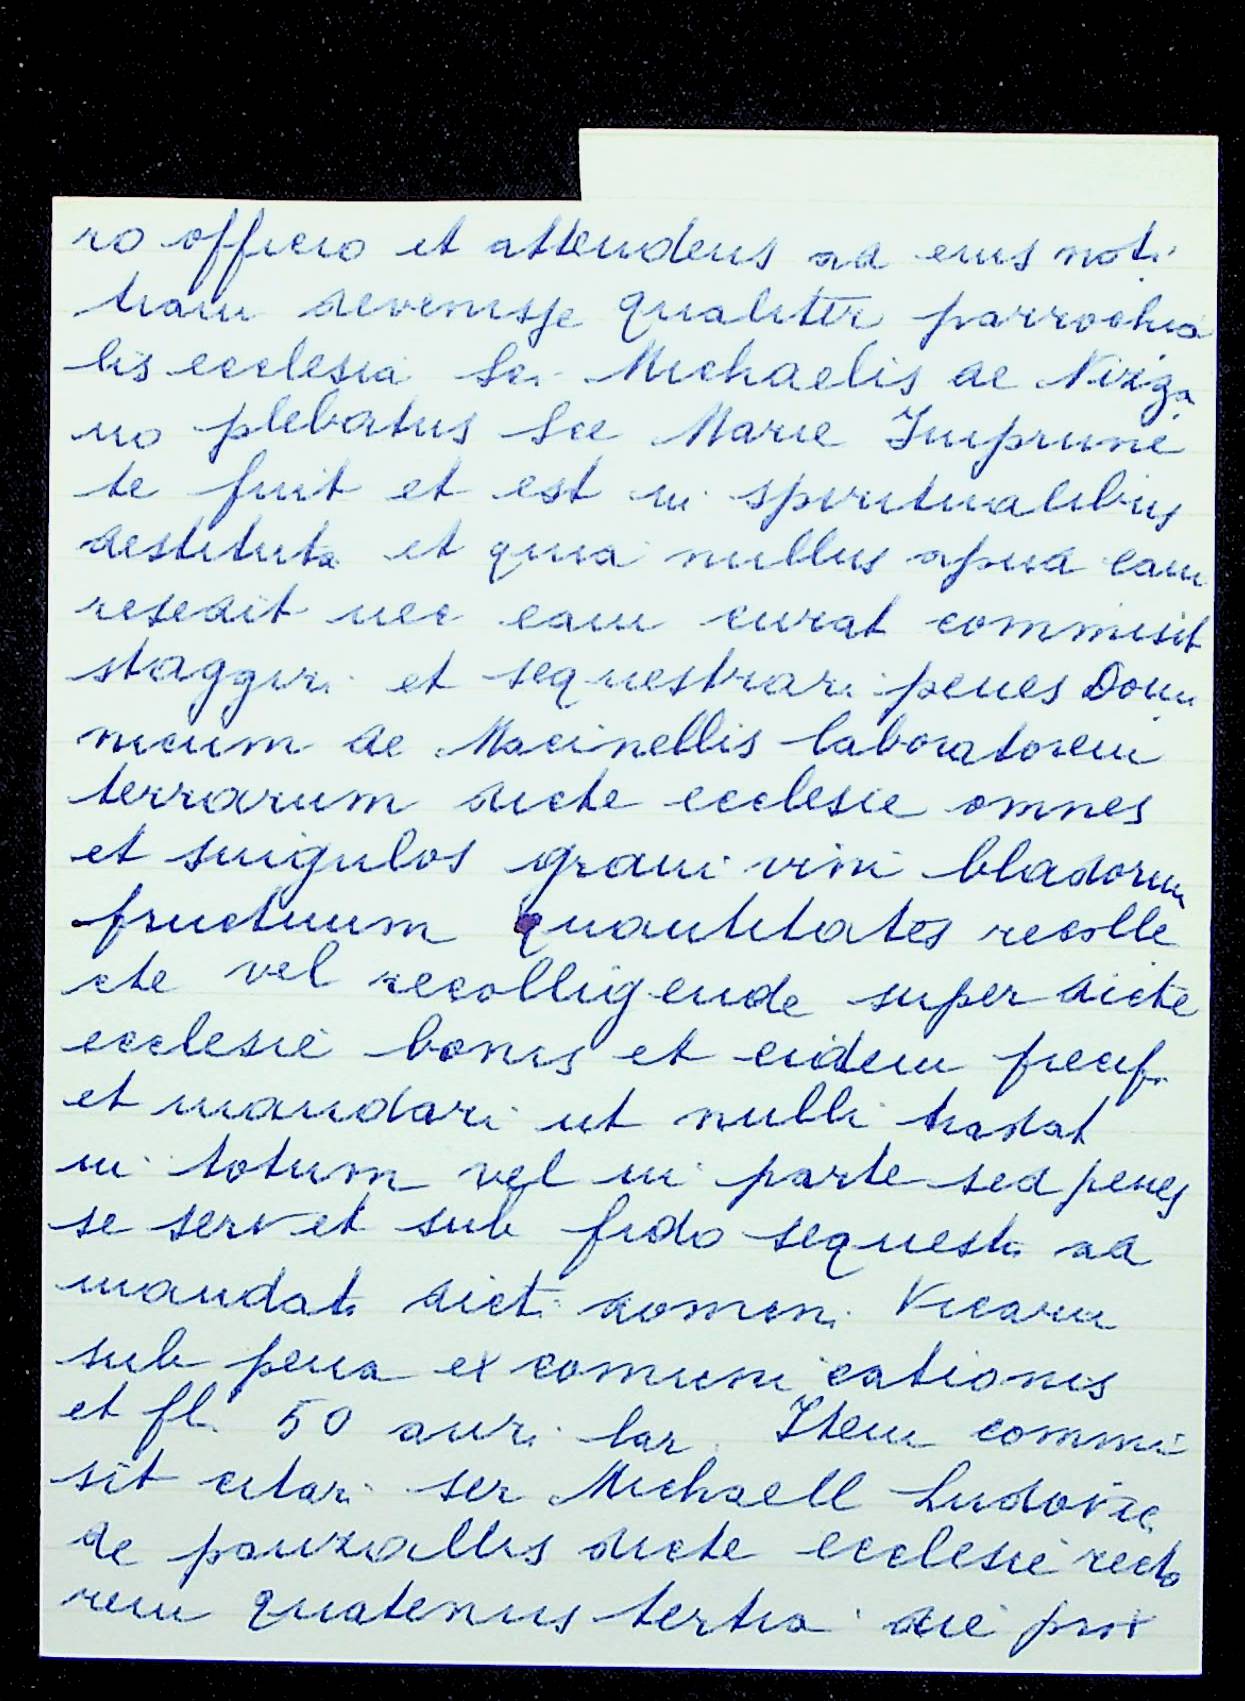 ro officio et attendens ad eius noti
tiam devenisse qualiter parrochia
lis ecclesia Sci Michaelis de Nizza
no plebatus Sce Marie Imprune
te fuit et est in spiritualibus
destituta et quia nullus apud eam
resedit nec eam curat commisit
staggiri et sequestrari penes Domi
nicum de Macinellis laboratorem
terrarum dicte ecclesie omnes
et singulos grani vini bladorum
fructuum quantitates recolle
cte vel recolligende super dicte
ecclesie bonis et eidem
et mandari ut nulli tradat
in totum vel in parte sed penes
se servet sub fido sequestro ad
mandata dicti domini Vicarii
sub pena excomunicationis
et fl. 50 auri lar. Item commi
sit citari ser Michaell Ludovic
de panzallis dicte ecclesie recto
rem quatenus tertia die prox